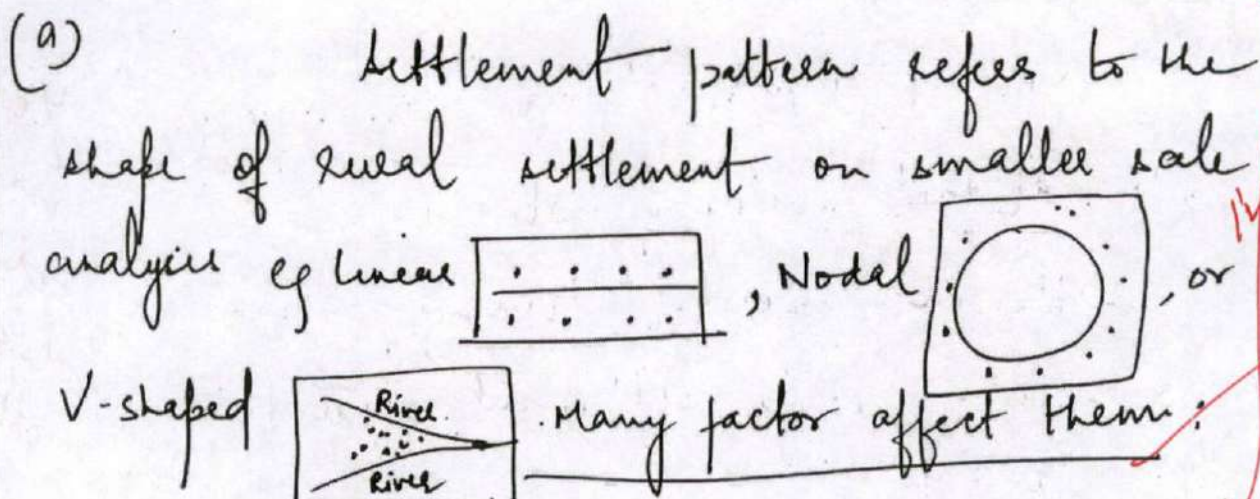 (a) Settlement pattern refers to the
shape of rural settlement on smaller scale
analysis eg Linear , Nodal , or
V-shaped River River . Many factor affect them :